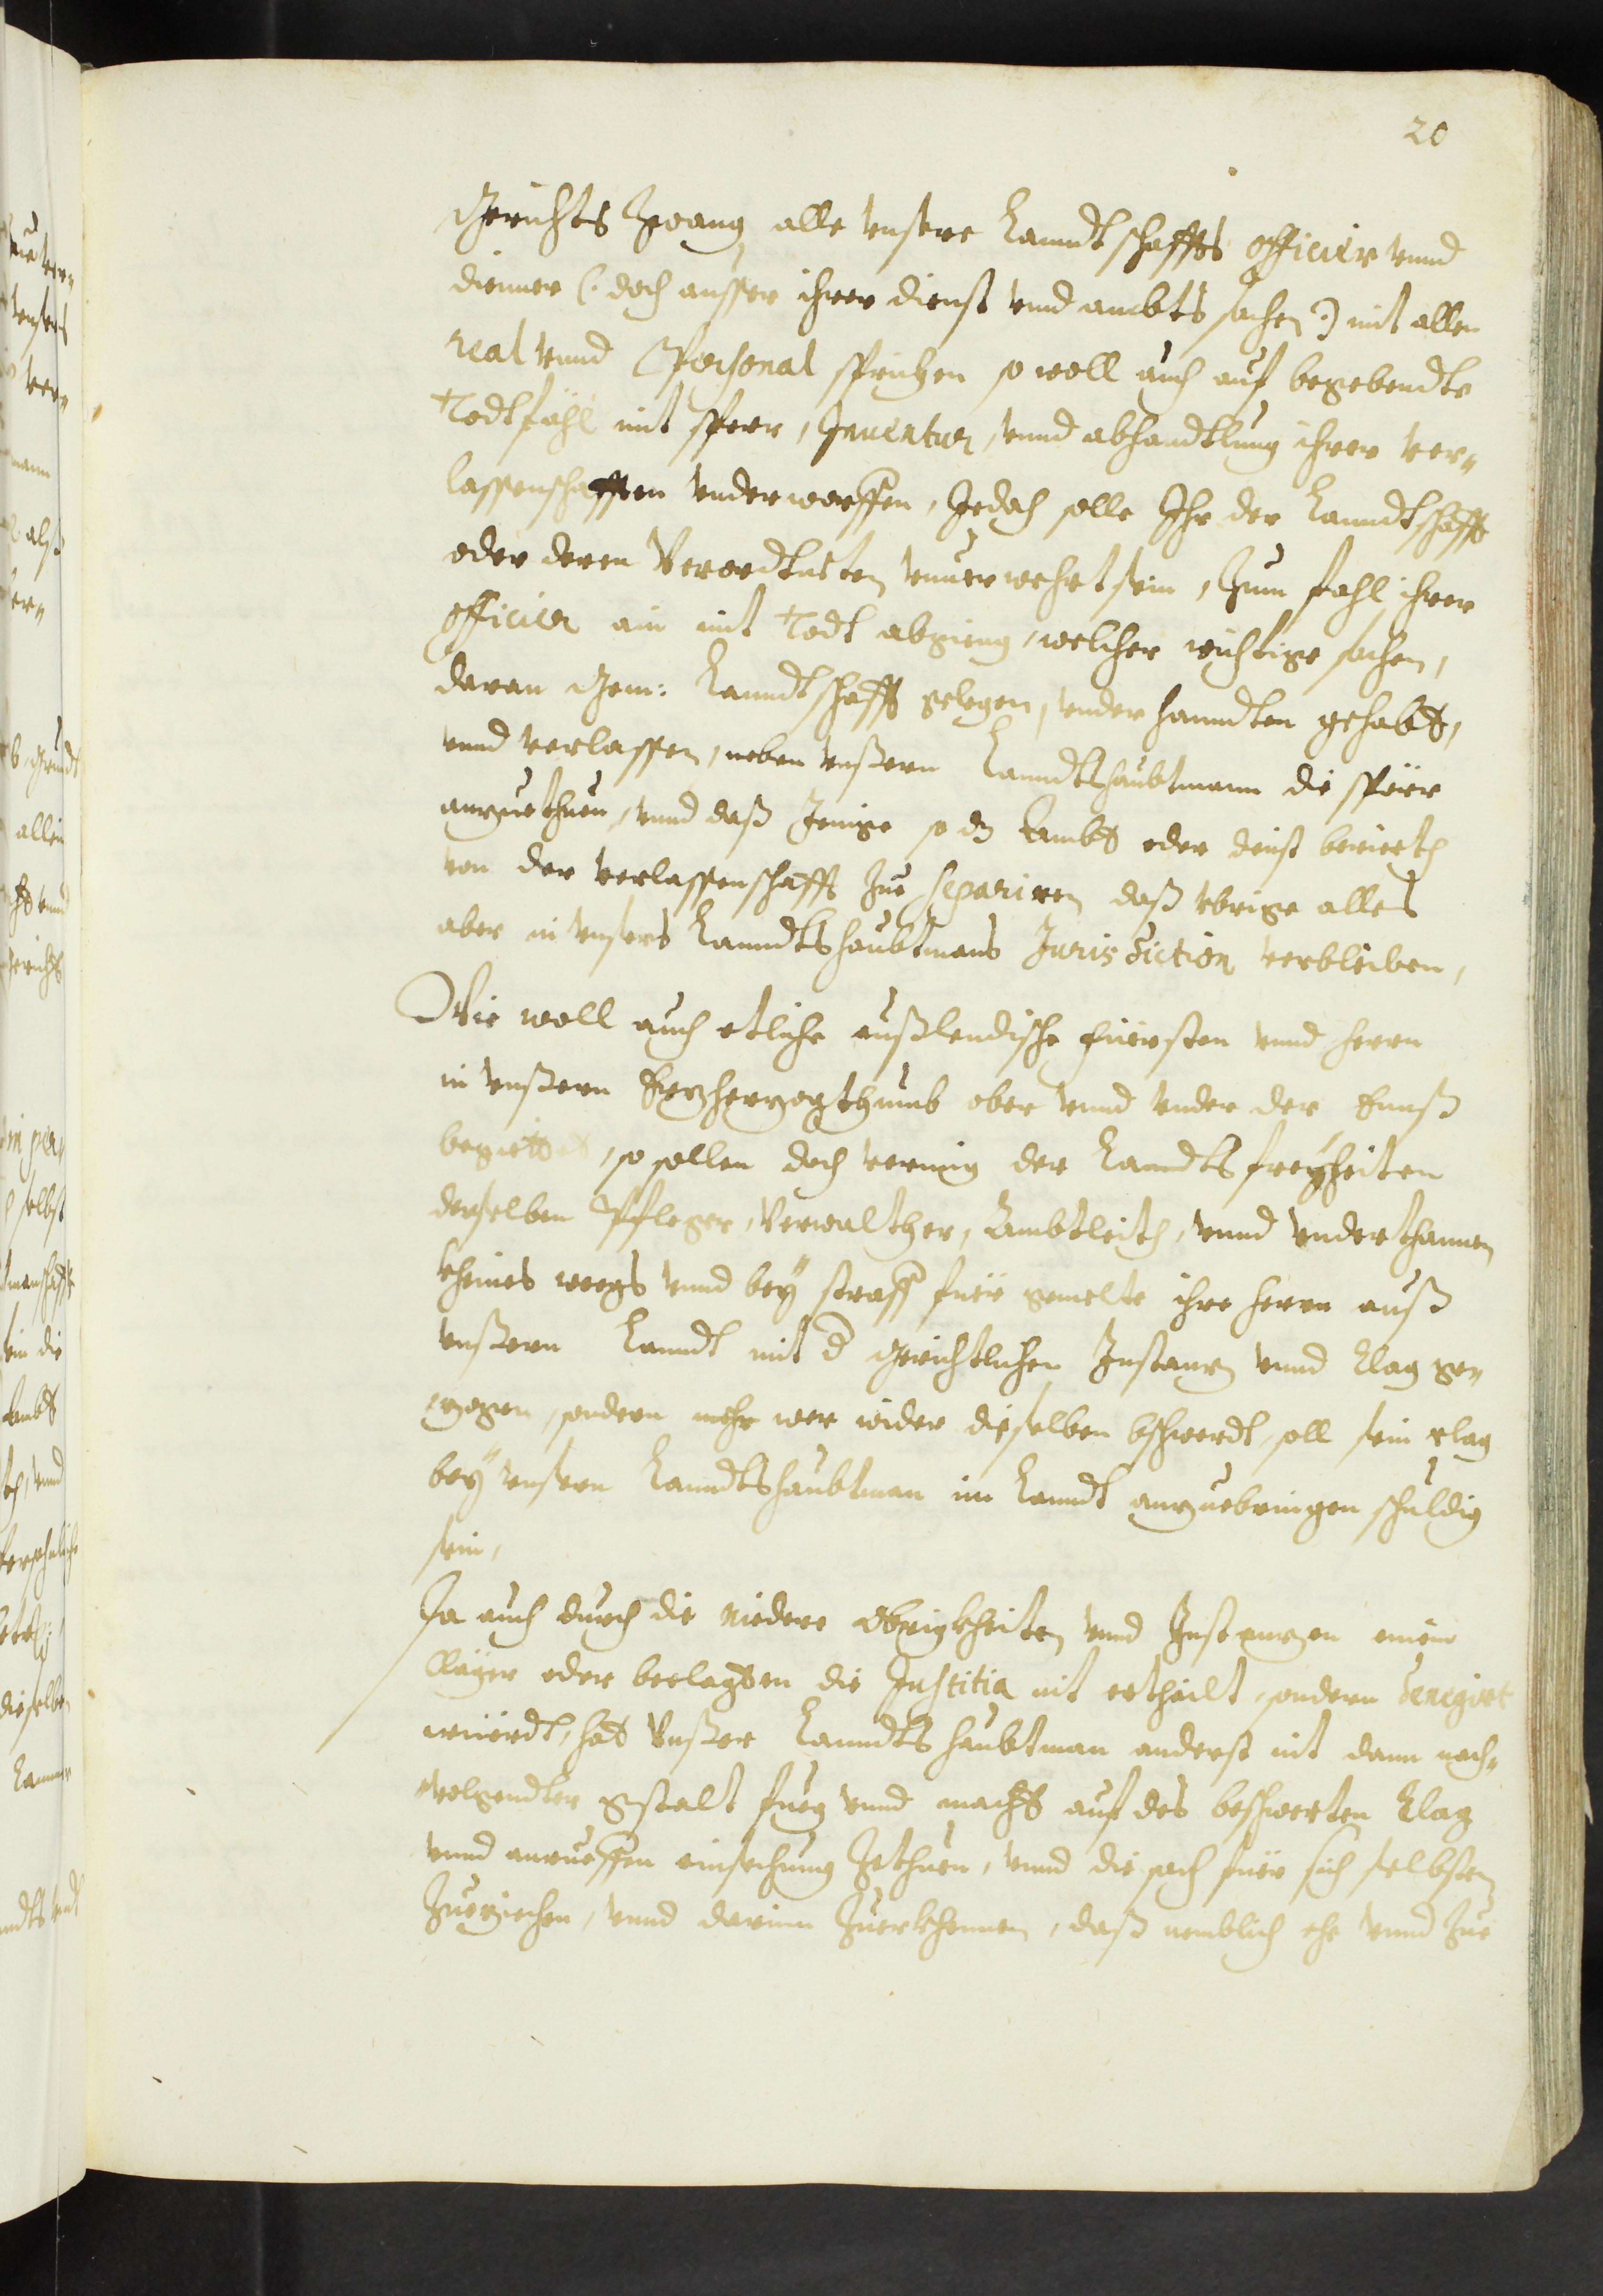 20
Gerichts Zwang alle vnsere Landtschaffts officier vnnd
dienner (: doch ausser ihrer dienst vnd ambts sachen :) mit allen
real vnnd Personal sprüchen so woll auch auf begebendte
Todtfähl mit sperr, Inuentur, vnnd abhandtlung ihrer ver„
lassenschafften vnderworffen, Jedoch solle Ihr der Lanndtschafft
oder deren Verordtneten vnuerwehrt sein, Zum fahl ihrer
officier ain mit Todt abgieng, welcher wichtige sachen,
daran Gem: Lanndtschafft gelegen, vnder hanndten gehabt,
vnnd verlassen, neben vnßern Lanndtshaubtmann die spörr
anzuethuen, vnnd daß Jenige so dz Ambt oder dinst berierth
von der verlassenschafft Zue separiren daß vbrige alles
aber in vnsers Lanndtshaubtmans Jurisdiction verbleiben,
Wie woll auch etliche außlendische fürsten vnnd herrn
in vnßern Erzherzogthumb ober vnnd vnder der Ennß
begüettet, so sollen doch vermüg der Lanndtsfreyheiten
derselben Pfleger, Verwalther, Ambtleith, vnnd vnderthannen
kheines weegs vnnd bey straff für gemelte ihre herrn auß
vnßern Lanndt mit d Gerichtlichen Instanz vnnd Clag ge„
zogen, sondern mehr wer wider dieselben bschwerdt, soll sein clag
bey vnsern Lanndtshaubtman im Lanndt anzuebringen schuldig
sein,
Ja auch durch die Niedere Obrigkheiten vnnd Instanzen einem
Cläger oder beclagten die Justitia nit ertheilt, sondern denegirt
wüerdt, hat Vnßer Lanndtshaubtman anderst nit dann nach„
uolgendter gstalt fueg vnnd macht auf des beschwerten Clag
vnnd anrueffen einsechung Zethuen, vnnd die sach für sich selbsten
Zueziechen, vnnd darinn Zuerkhennen, daß nemblich ehe vnnd Zue